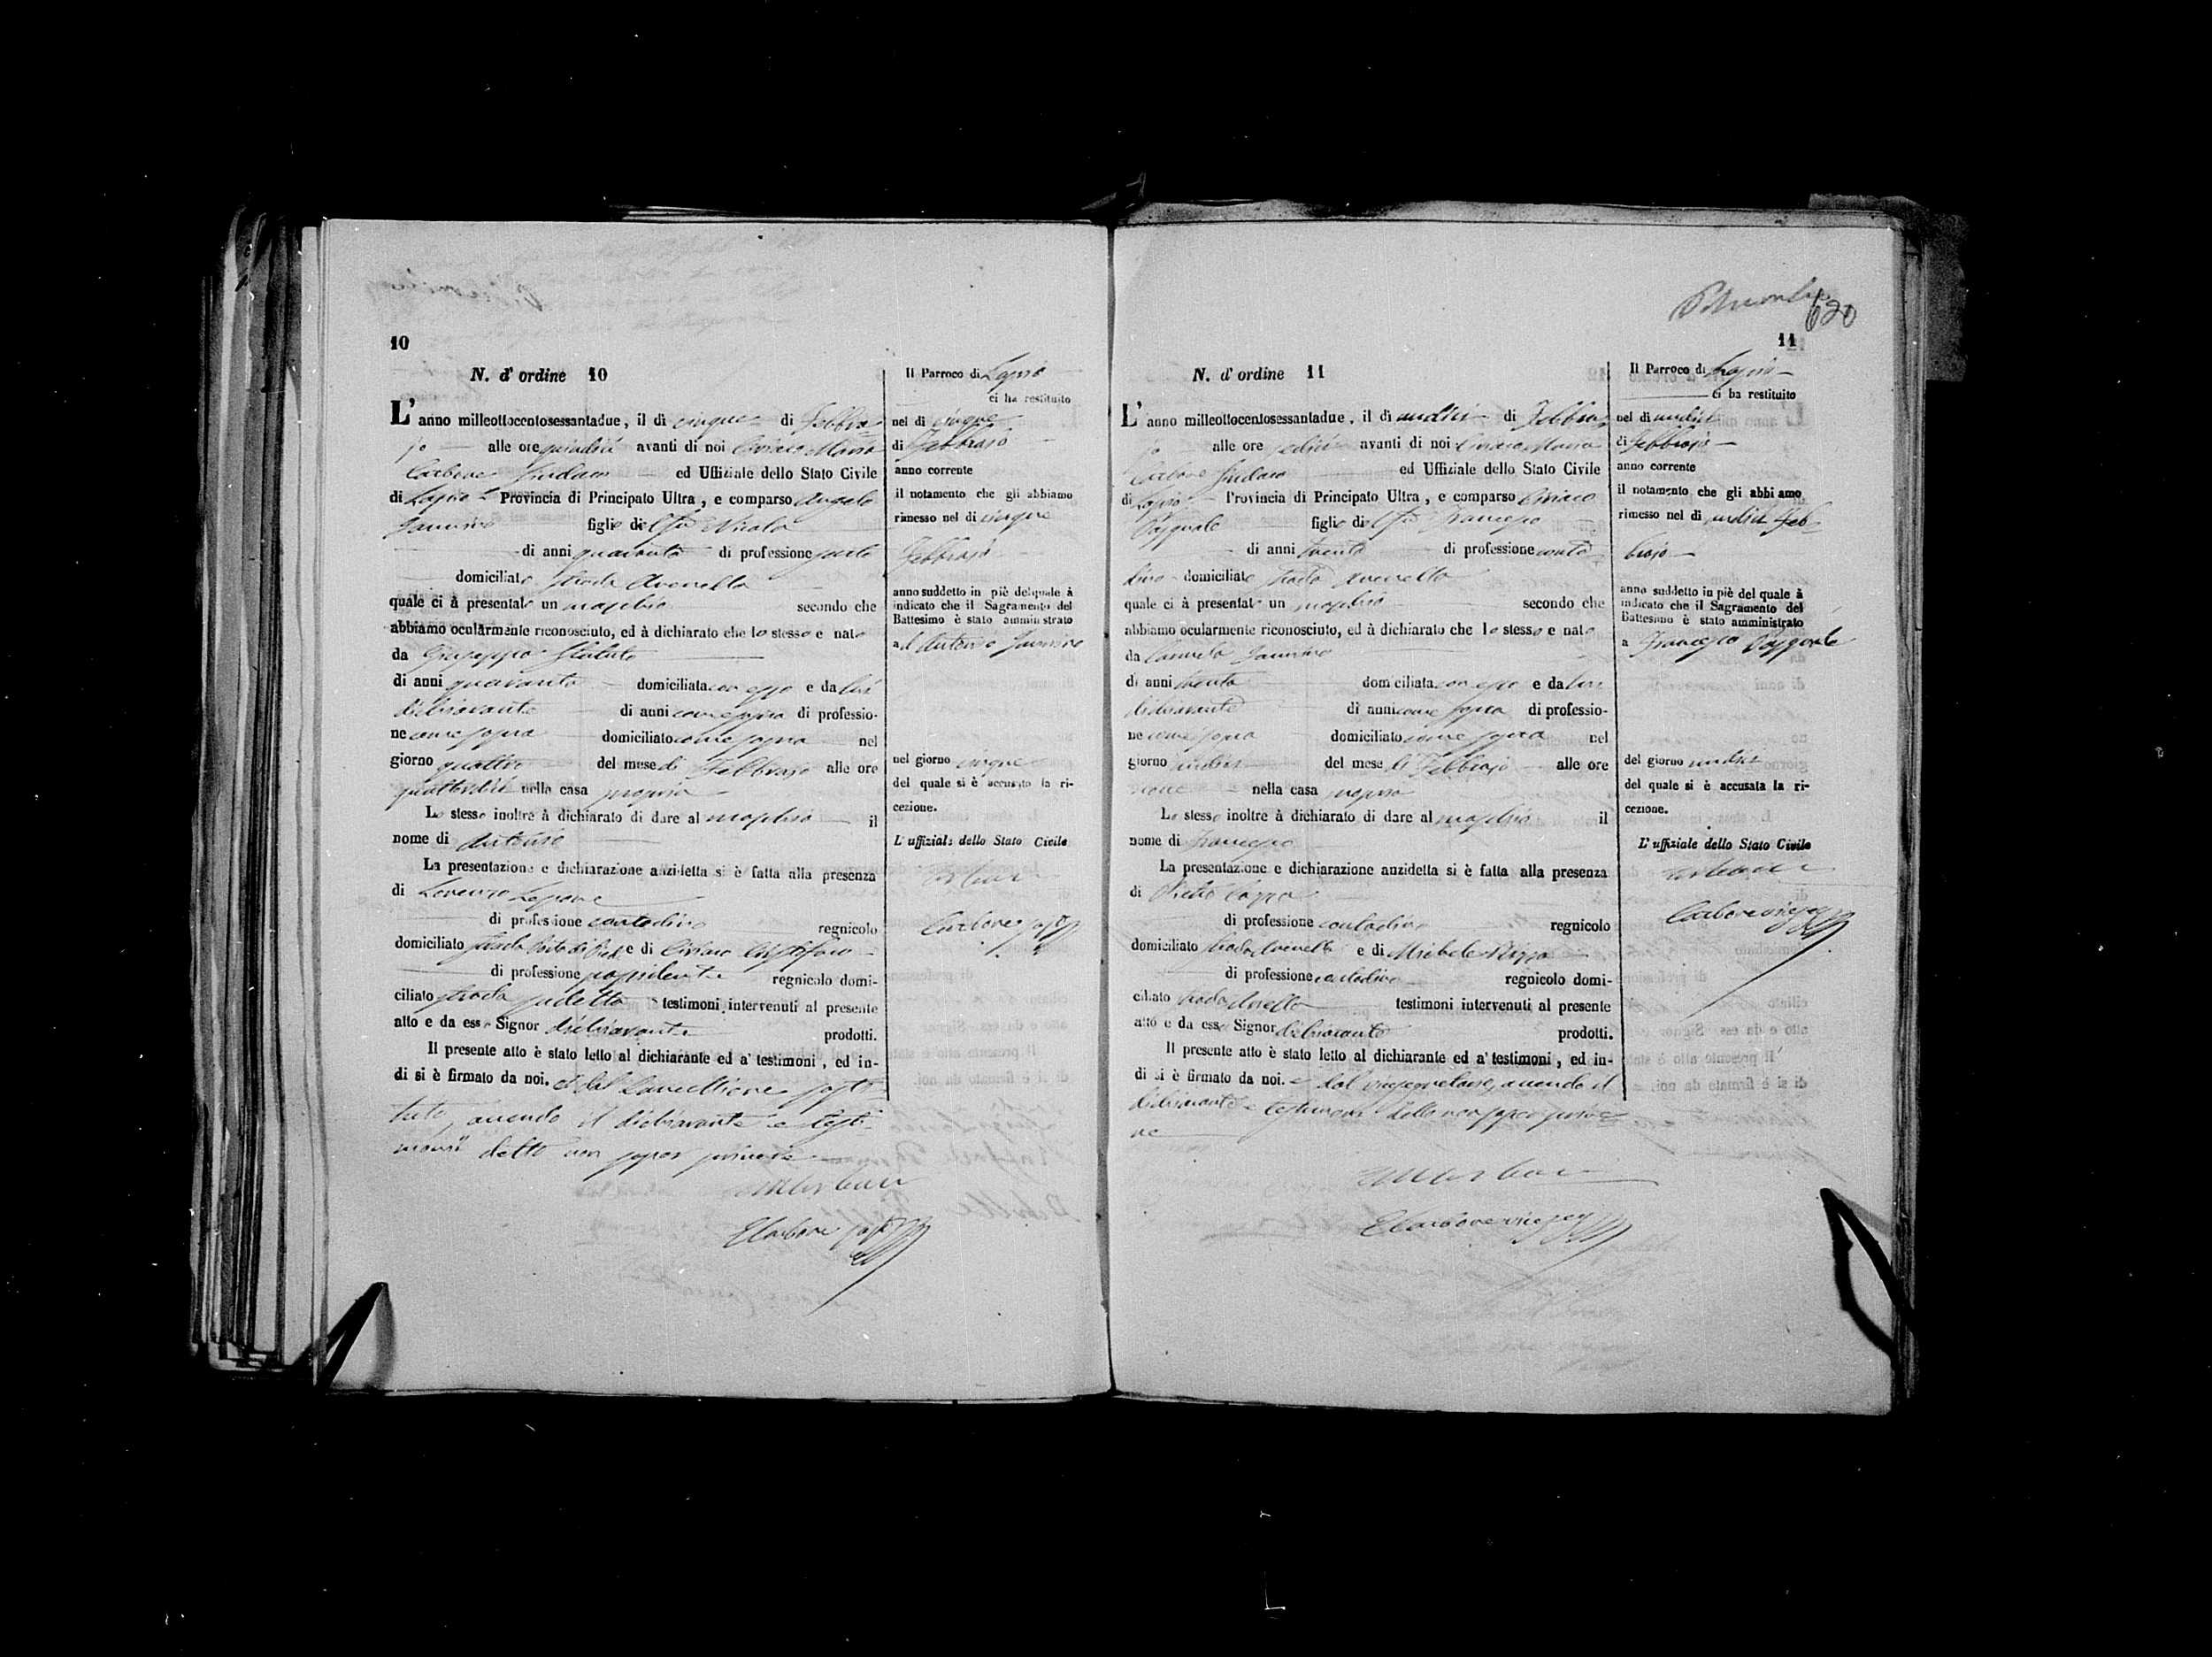 10
N. d' ordine 10
L' anno milleottocentosessantadue, il dì cinque di Febbra-
jo alle ore quindici avanti di noi Ciriaco Maria
Carbone Sindaco ed Uffiziale dello Stato Civile
di Lapio Provincia di Principato Ultra, e comparso Angelo
figlio di Nicola
di anni quaranta di professione
domiciliato strada Avenella
quale ci à presentato un maschio secondo che
abbiamo ocularmente riconosciuto, ed à dichiarato che lo stesso e nato
da Giuseppa
di anni quaranta domiciliata con esso e da lui
dichiarante di anni come sopra di professio-
ne come sopra domiciliato come sopra nel
giorno quattro del mese di Febbrajo alle ore
quattordici nella casa propria
Lo stesso inoltre à dichiarato di dare al maschio il
nome di Antonio
La presentazione e dichiarazione anzidetta si è fatta alla presenza
di Lorenzo
di professione contadino regnicolo
domiciliato strada e di Ciriaco
di professione regnicolo domi-
ciliato strada sudetta testimoni intervenuti al presente
atto e da esso Signor dichiarante prodotti.
Il presente atto è stato letto al dichiarante ed a' testimoni, ed in-
di si è firmato da noi. e dal Cancelliere sosti-
tuto, avendo il dichiarante e testi-
monii detto non saper scrivere
Carbone
Il Parroco di Lapio
ci ha restituito
nel dì cinque
di Febbrajo
anno corrente
il notamento che gli abbiamo
rimesso nel dì cinque
Febbrajo
anno suddetto in piè del quale à
indicato che il Sagramento del
Battesimo è stato amministrato
ad Antonio
nel giorno cinque
del quale si è accusata la ri-
cezione.
L' uffiziale dello Stato Civile
Carbone
620
11
N. d' ordine 11
L' anno milleottocentosessantadue, il dì undici di Febbra-
jo alle ore sedici avanti di noi Ciriaco Maria
Carbone Sindaco ed Uffiziale dello Stato Civile
di Lapio Provincia di Principato Ultra, e comparso Ciriaco
Pasquale figlio di Francesco
di anni trenta di professione conta-
dino domiciliato strada Avenella
quale ci à presentato un maschio secondo che
abbiamo ocularmente riconosciuto, ed à dichiarato che lo stesso e nato
da Carmela
di anni trenta domiciliata con esso e da lui
dichiarante di anni come sopra di professio-
ne come sopra domiciliato come sopra nel
giorno undici del mese di Febbrajo alle ore
nella casa propria
Lo stesso inoltre à dichiarato di dare al maschio il
nome di Francesco
La presentazione e dichiarazione anzidetta si è fatta alla presenza
di
di professione contadino regnicolo
domiciliato strada Avenella e di Michele
di professione contadino regnicolo domi-
ciliato strada testimoni intervenuti al presente
atto e da esso Signor dichiarante prodotti.
Il presente atto è stato letto al dichiarante ed a' testimoni, ed in-
di si è firmato da noi. e dal avendo il
dichiarante e testimoni detto non saper scrive-
re
Carbone
Il Parroco di Lapio
ci ha restituito
nel dì undici
di Febbrajo
anno corrente
il notamento che gli abbiamo
rimesso nel dì undici Feb-
brajo
anno suddetto in piè del quale à
indicato che il Sagramento del
Battesimo è stato amministrato
a Francesco Pasquale
del giorno undici
del quale si è accusata la ri-
cezione.
L' uffiziale dello Stato Civile
Carbone